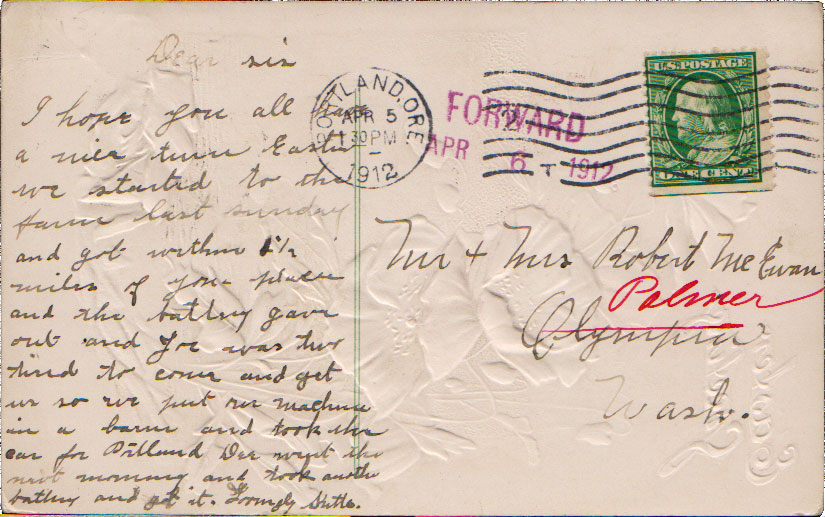 Dear sis
I hope you all
a nice time Easter
we started to the
farm last sunday
and got within 1½
miles of your place
and the battery gave
out and Joe was two
tired to come and get
us so we put our machine
in a barn and took the
car for Portland Dee went the
next morning and took another
battery and got it. Lovingly
PORTLAND, ORE
APR 5
1:30 PM
1912
FORWARD
APR 6 1912
U.S. POSTAGE
ONE CENT
Mr + Mrs Robert McEwan
Palmer
Olympia
Wash.